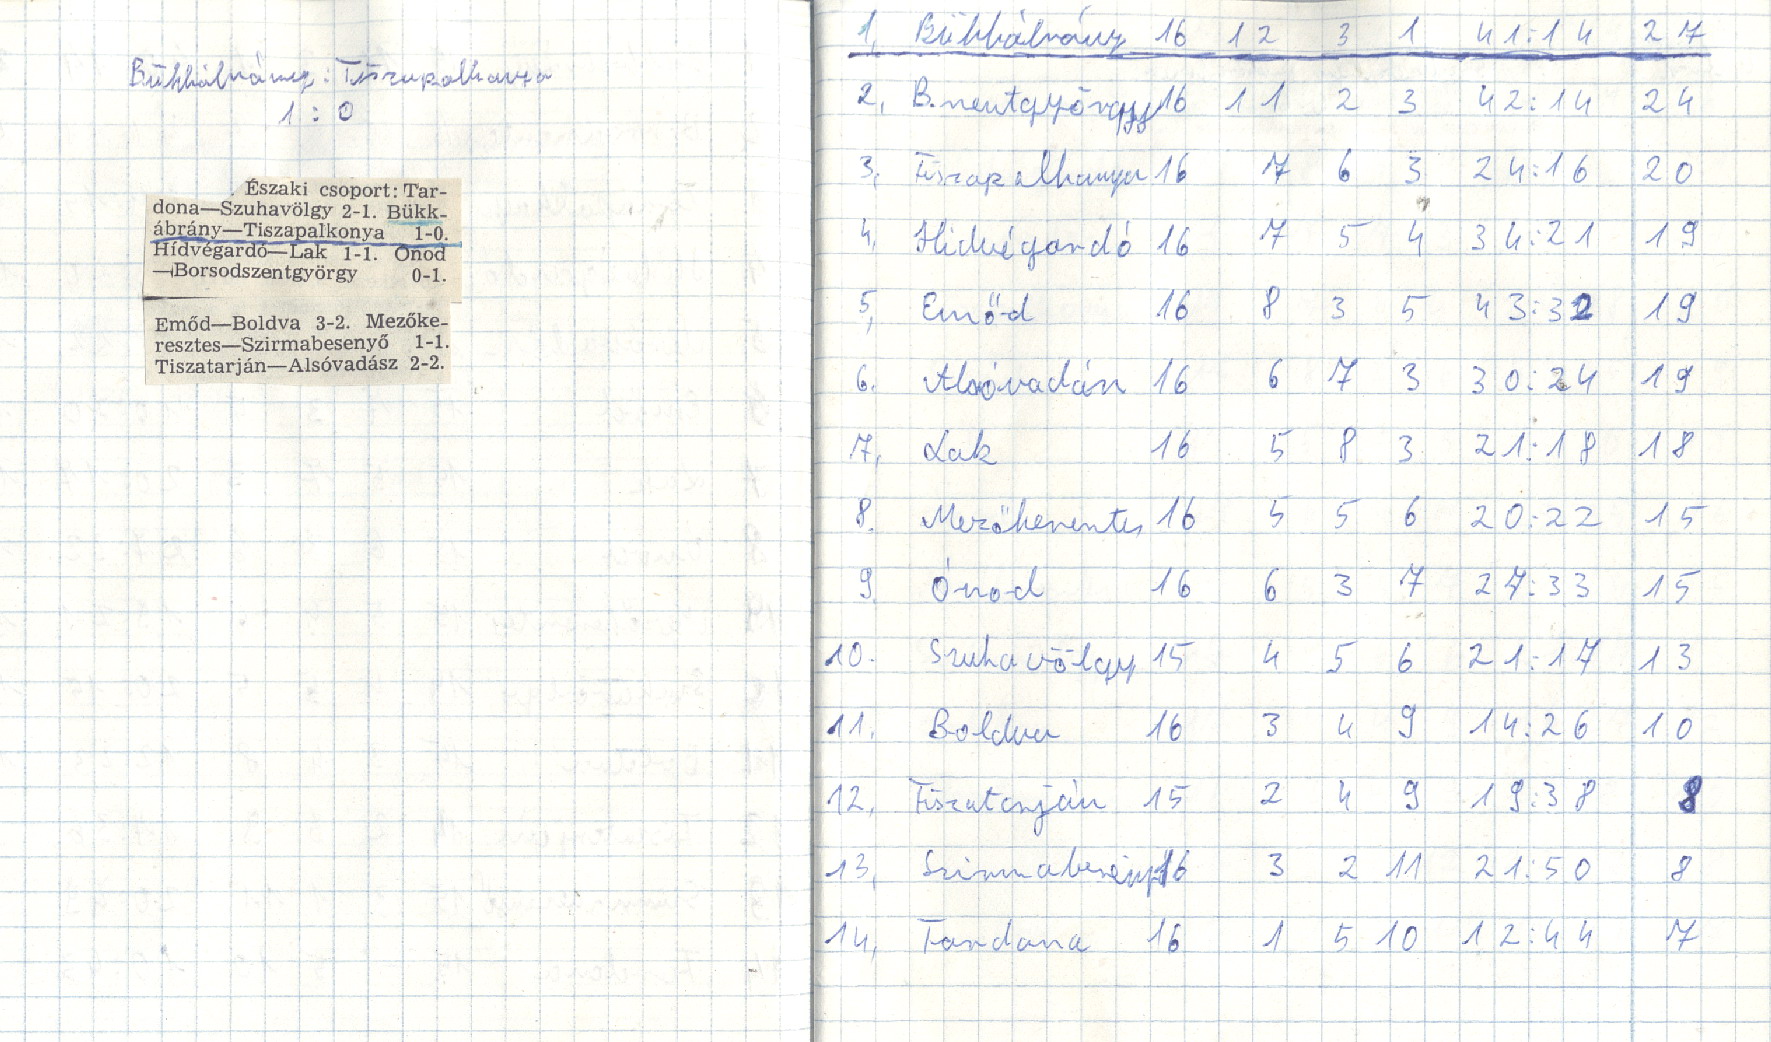 Bükkábrány : Tiszapalkonya
1 : 0
Északi csoport: Tar-
dona—Szuhavölgy 2-1. Bükk-
ábrány—Tiszapalkonya 1-0.
Hídvégardó—Lak 1-1. Ónod
—Borsodszentgyörgy 0-1.
Emőd—Boldva 3-2. Mezőke-
resztes—Szirmabesenyő 1-1.
Tiszatarján—Alsóvadász 2-2.
1, Bükkábrány 16 12 3 1 41:14 27
2, B.szentgyörgy 16 11 2 3 42:14 24
3, Tiszapalkonya 16 7 6 3 24:16 20
4, Hidvégardó 16 7 5 4 34:21 19
5, Emőd 16 8 3 5 43:32 19
6. Alsóvadász 16 6 7 3 30:24 19
7, Lak 16 5 8 3 21:18 18
8. Mezőkeresztes 16 5 5 6 20:22 15
9. Ónod 16 6 3 7 27:33 15
10. Szuhavölgy 15 4 5 6 21:17 13
11. Boldva 16 3 4 9 14:26 10
12, Tiszatarján 15 2 4 9 19:38 8
13, Szirmabesenyő 16 3 2 11 21:50 8
14, Tardona 16 1 5 10 12:44 7